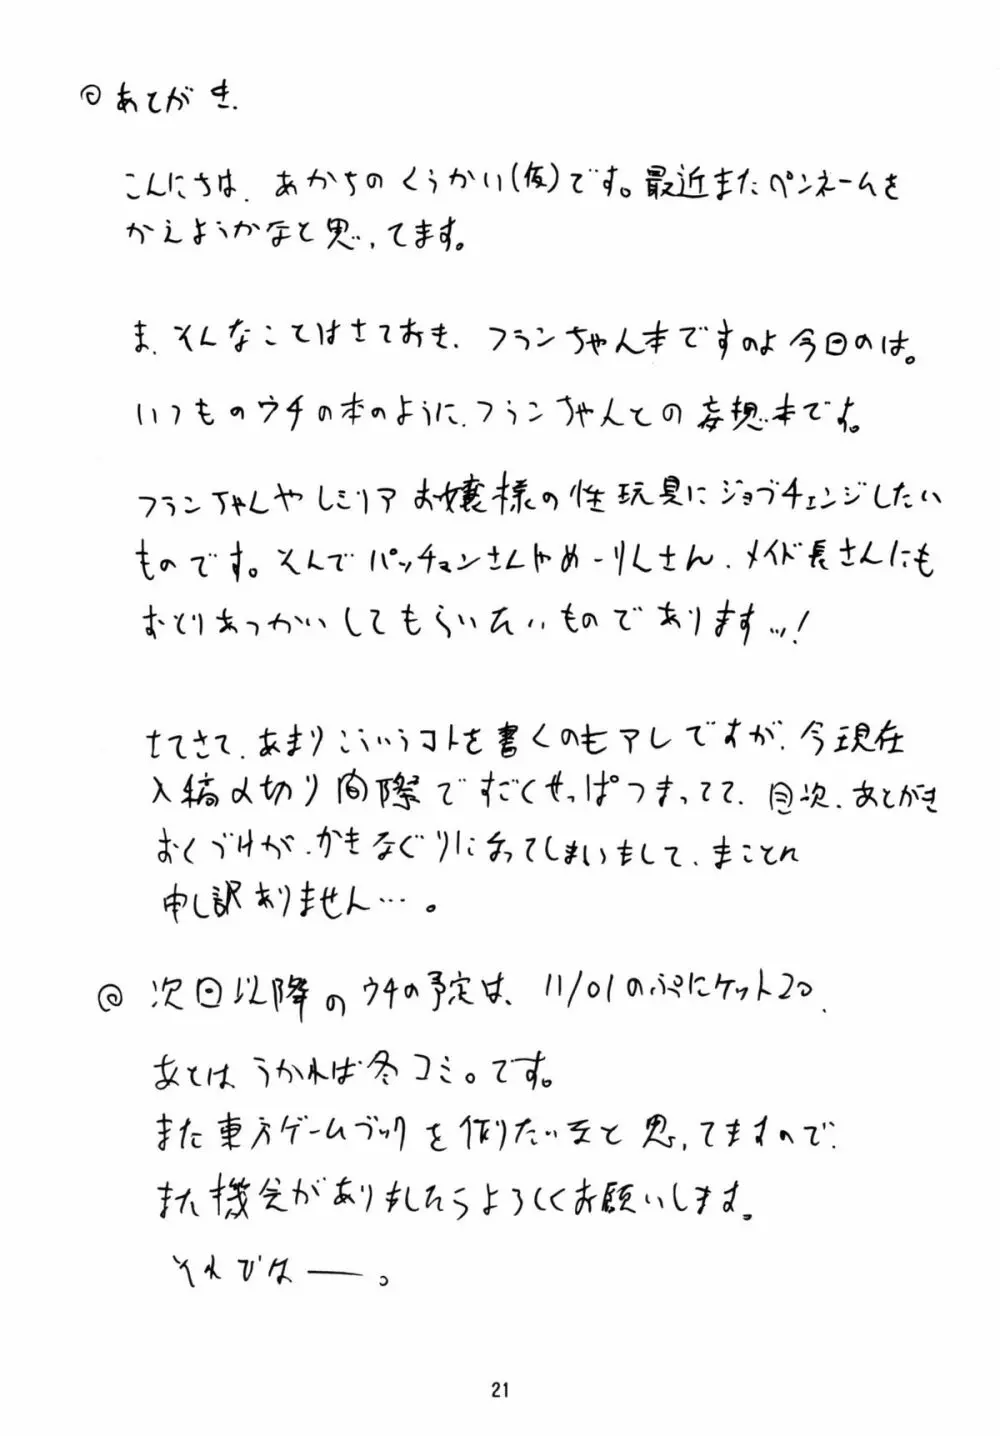 ◎あとがき.
こんにちは、あかちのくうかい(仮)です。最近またペンネームを
かえようかなと思ってます。
ま、そんなことはさておき、フランちゃん本ですのよ今日のは。
いつものウチの本のように、フランちゃんとの妄想本です。
フランちゃんやレミリアお嬢様の性玩具にジョブチェンジしたい
ものです。そんでパッチョンさんやめーりんさん、メイド長さんにも
おとりあつかいしてもらいたいものでありますッ!
さてさて、あまりこういうコトを書くのもアレですが、今現在
入稿〆切り間際ですごくせっぱつまってて、目次、あとがき
おくづけが、かきなぐりになってしまいまして、まことに
申し訳ありません…。
◎次回以降のウチの予定は、11/01のぷにケット20、
あとはうかれば冬コミ。です。
また東方ゲームブックを作りたいなと思ってますので、
また機会がありましたらよろしくお願いします。
それではー。
21